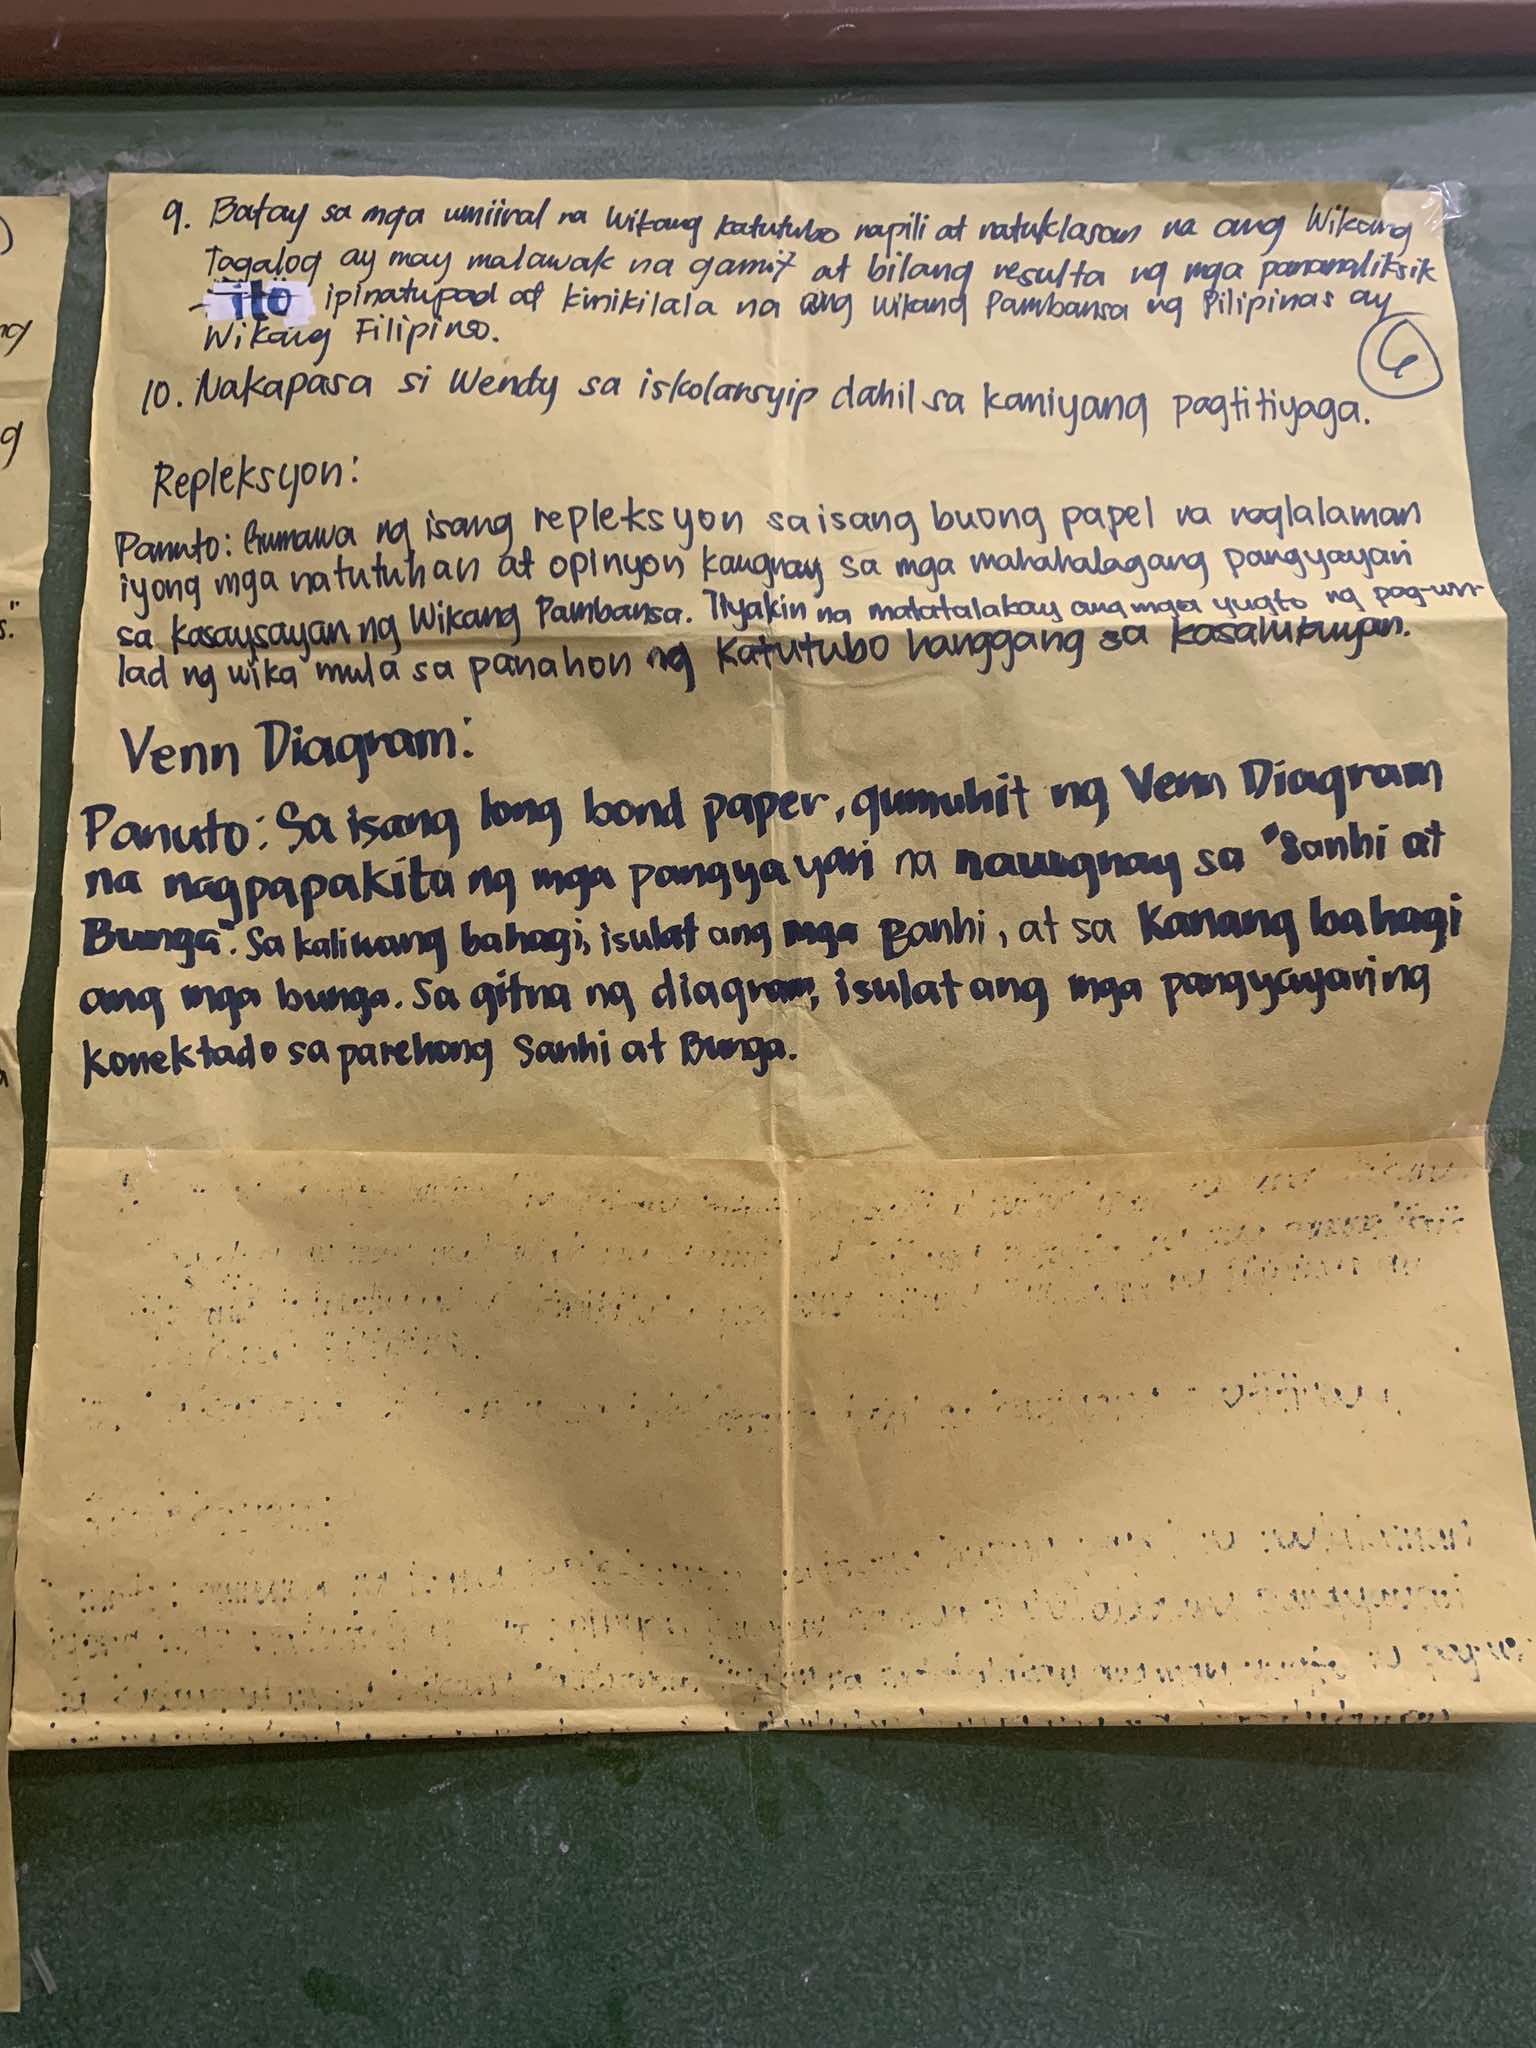 9. Batay sa mga umiiral na wikang katutubo napili at natuklasan na ang Wikang
Tagalog ay may malawak na gamit at bilang resulta ng mga pananaliksik
ito ipinatupad at kinikilala na ang wikang Pambansa ng Pilipinas ay
Wikang Filipino.
10. Nakapasa si Wendy sa iskolarsyip dahil sa kaniyang pagtitiyaga.
Repleksyon:
Panuto: Gumawa ng isang repleksyon sa isang buong papel na naglalaman
iyong mga natutuhan at opinyon kaugnay sa mga mahahalagang pangyayari
sa kasaysayan ng Wikang Pambansa. Tiyakin na matatalakay ang mga yugto ng pag-un-
lad ng wika mula sa panahon ng Katutubo hanggang sa kasalukuyan.
Venn Diagram:
Panuto: Sa isang long bond paper, gumuhit ng Venn Diagram
na nagpapakita ng mga pangyayari na nauugnay sa "Sanhi at
Bunga". Sa kaliwang bahagi, isulat ang mga Sanhi, at sa Kanang bahagi
ang mga bunga. Sa gitna ng diagram, isulat ang mga pangyayaring
konektado sa parehong Sanhi at Bunga.